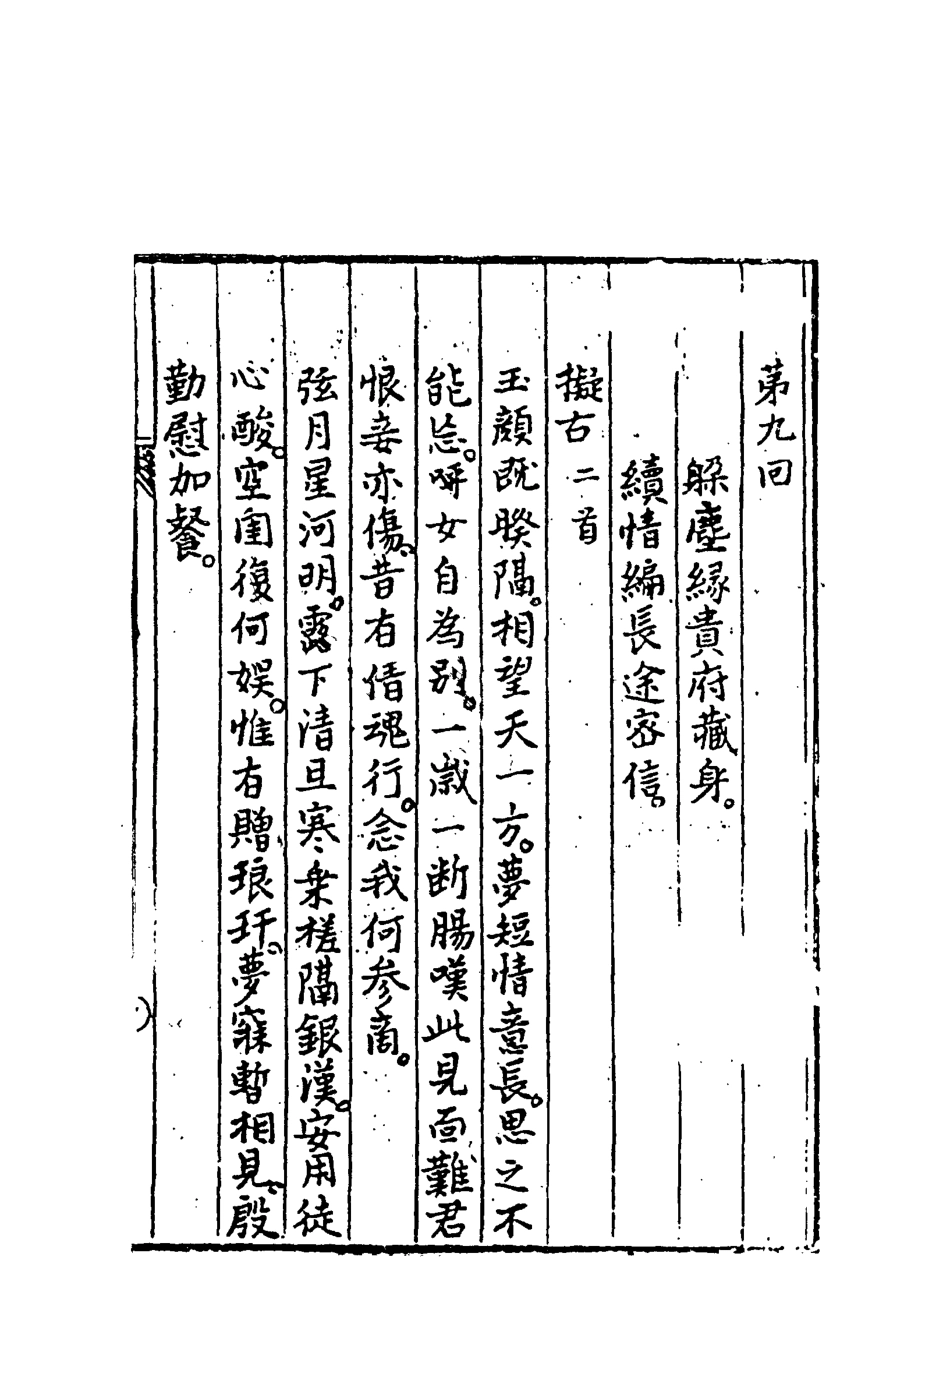 第九回
躱塵緣貴府藏身。
續情編長途密信。
擬古二首
玉顏既暌隔。相望天一方。夢短情意長。思之不
能忘。呼女自為別。一歲一断腸嘆此見面難君
恨妾亦傷。昔有倩魂行。念我何参商。
弦月星河明。露下清且寒乘槎隔銀漢。安用徒
心酸。空閨復何娱。惟有贈琅玕。夢寐暫相見。殷
勤慰加餐。